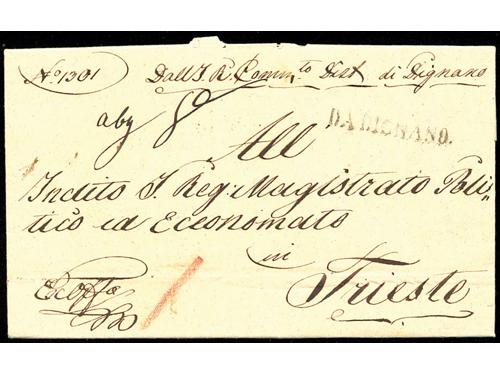 No 1301 Dall I. R. Comm.to Dist di Dignano
DA DIGNANO.
All
Inclito I. Reg: Magistrato Poli„
tico ed Economato
in
Trieste